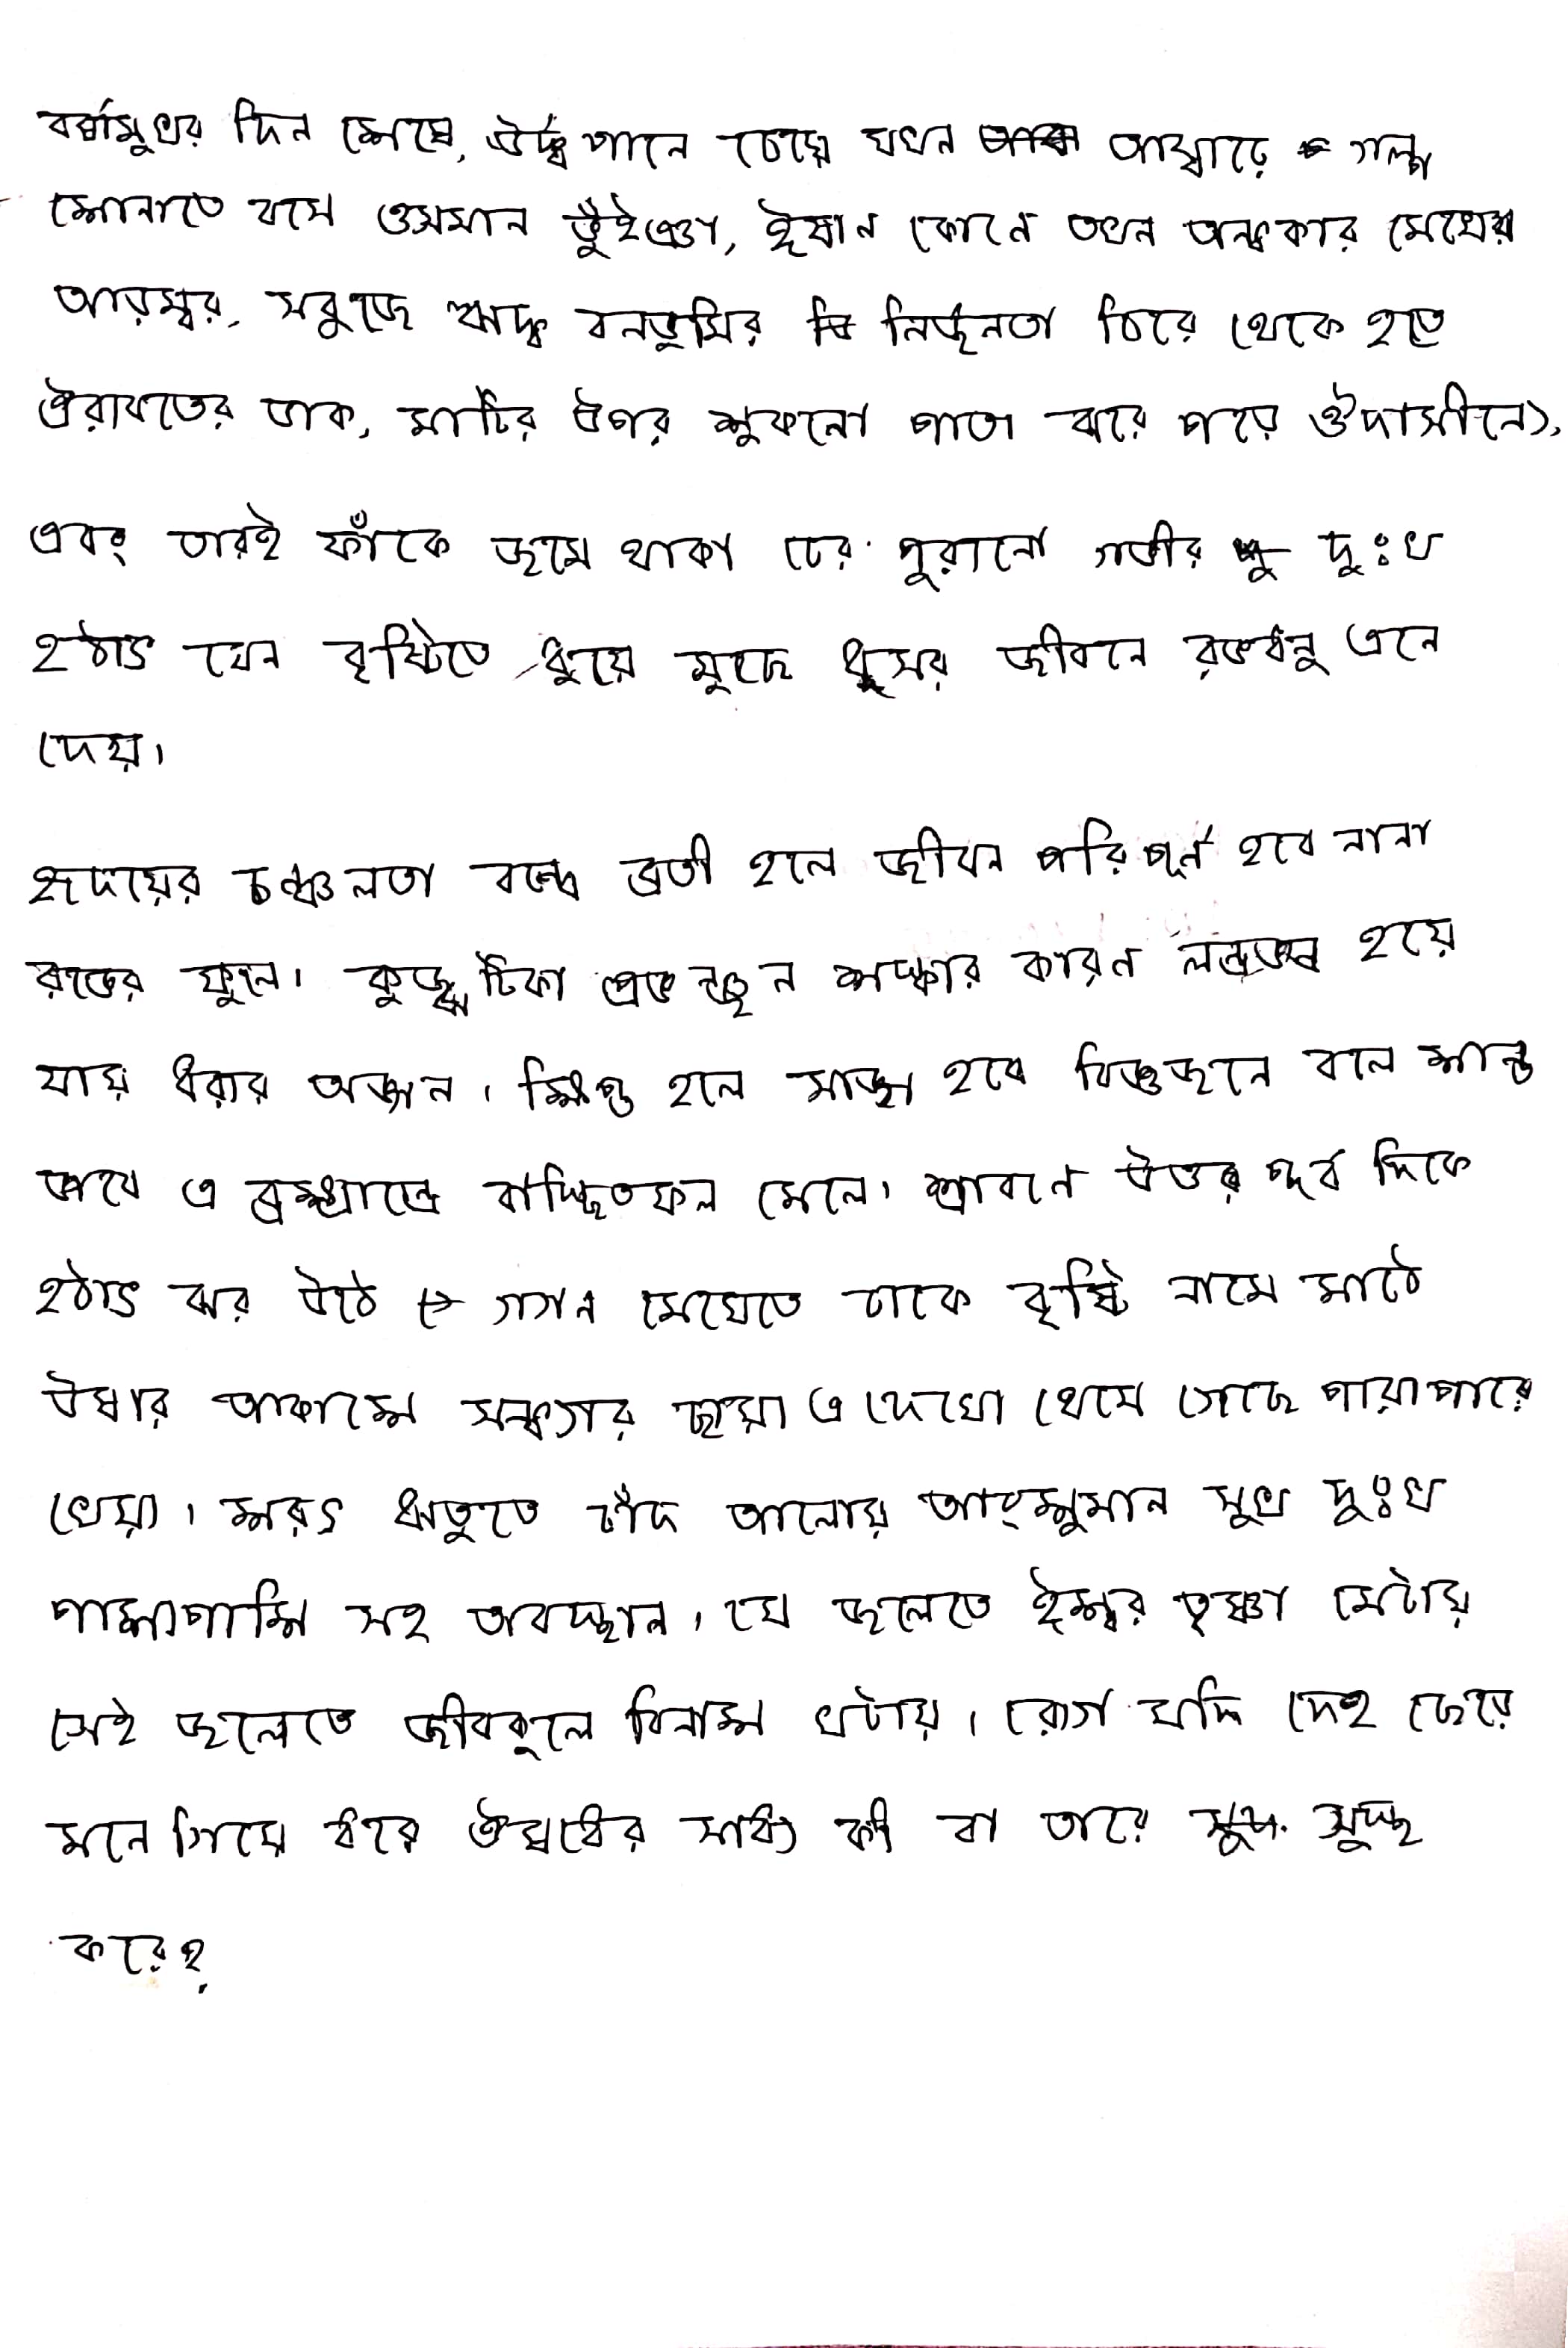 বর্ষামুখর দিন শেষে, ঊর্দ্ধ পানে চেয়ে যখন আষাঢ়ে গল্প
শোনাতে বসে ওসমান ভুঁইঞা, ঈষান কোনে তখন অন্ধকার মেঘের
আরম্বর, সবুজে ঋদ্ধ বনভুমির নির্জনতা চিরে থেকে হতে
ঐরাবতের ডাক, মাটির উপর শুকনো পাতা ঝরে পরে ঔদাসীন্যে,
এবং তারই ফাঁকে জমে থাকা ঢের পুরানো গভীর দুঃখ
হঠাৎ যেন বৃষ্টিতে ধুয়ে মুছে ধুসর জীবনে রঙধনু এনে
দেয়।
হৃদয়ের চঞ্চলতা বন্ধে ব্রতী হলে জীবন পরিপূর্ন হবে নানা
রঙের ফুলে। কুজ্ঝটিকা প্রভঞ্জন শঙ্কার কারন লন্ডভন্ড হয়ে
যায় ধরার অঙ্গন। ক্ষিপ্ত হলে সাজা হবে বিজ্ঞজনে বলে শান্ত
ভাবে এ ব্রহ্মান্ডে বাঞ্ছিতফল মেলে। শ্রাবনে উত্তর পূর্ব দিকে
হঠাৎ ঝর উঠে গগন মেঘেতে ঢাকে বৃষ্টি নামে মাঠে
উষার আকাশে সন্ধ্যার ছায়া এ দেখো থেমে গেছে পারাপারে
খেয়া। শরৎ ঋতুতে চাঁদ আলোয় আংশুমান সুখ দুঃখ
পাশাপাশি সহ অবস্থান। যে জলেতে ঈশ্বর তৃষ্ণা মেটায়
সেই জলেতে জীবকুলে বিনাশ ঘটায়। রোগ যদি দেহ ছেরে
মনে গিয়ে ধরে ঔষধের সাধ্য কী বা তারে সুস্থ
করে?